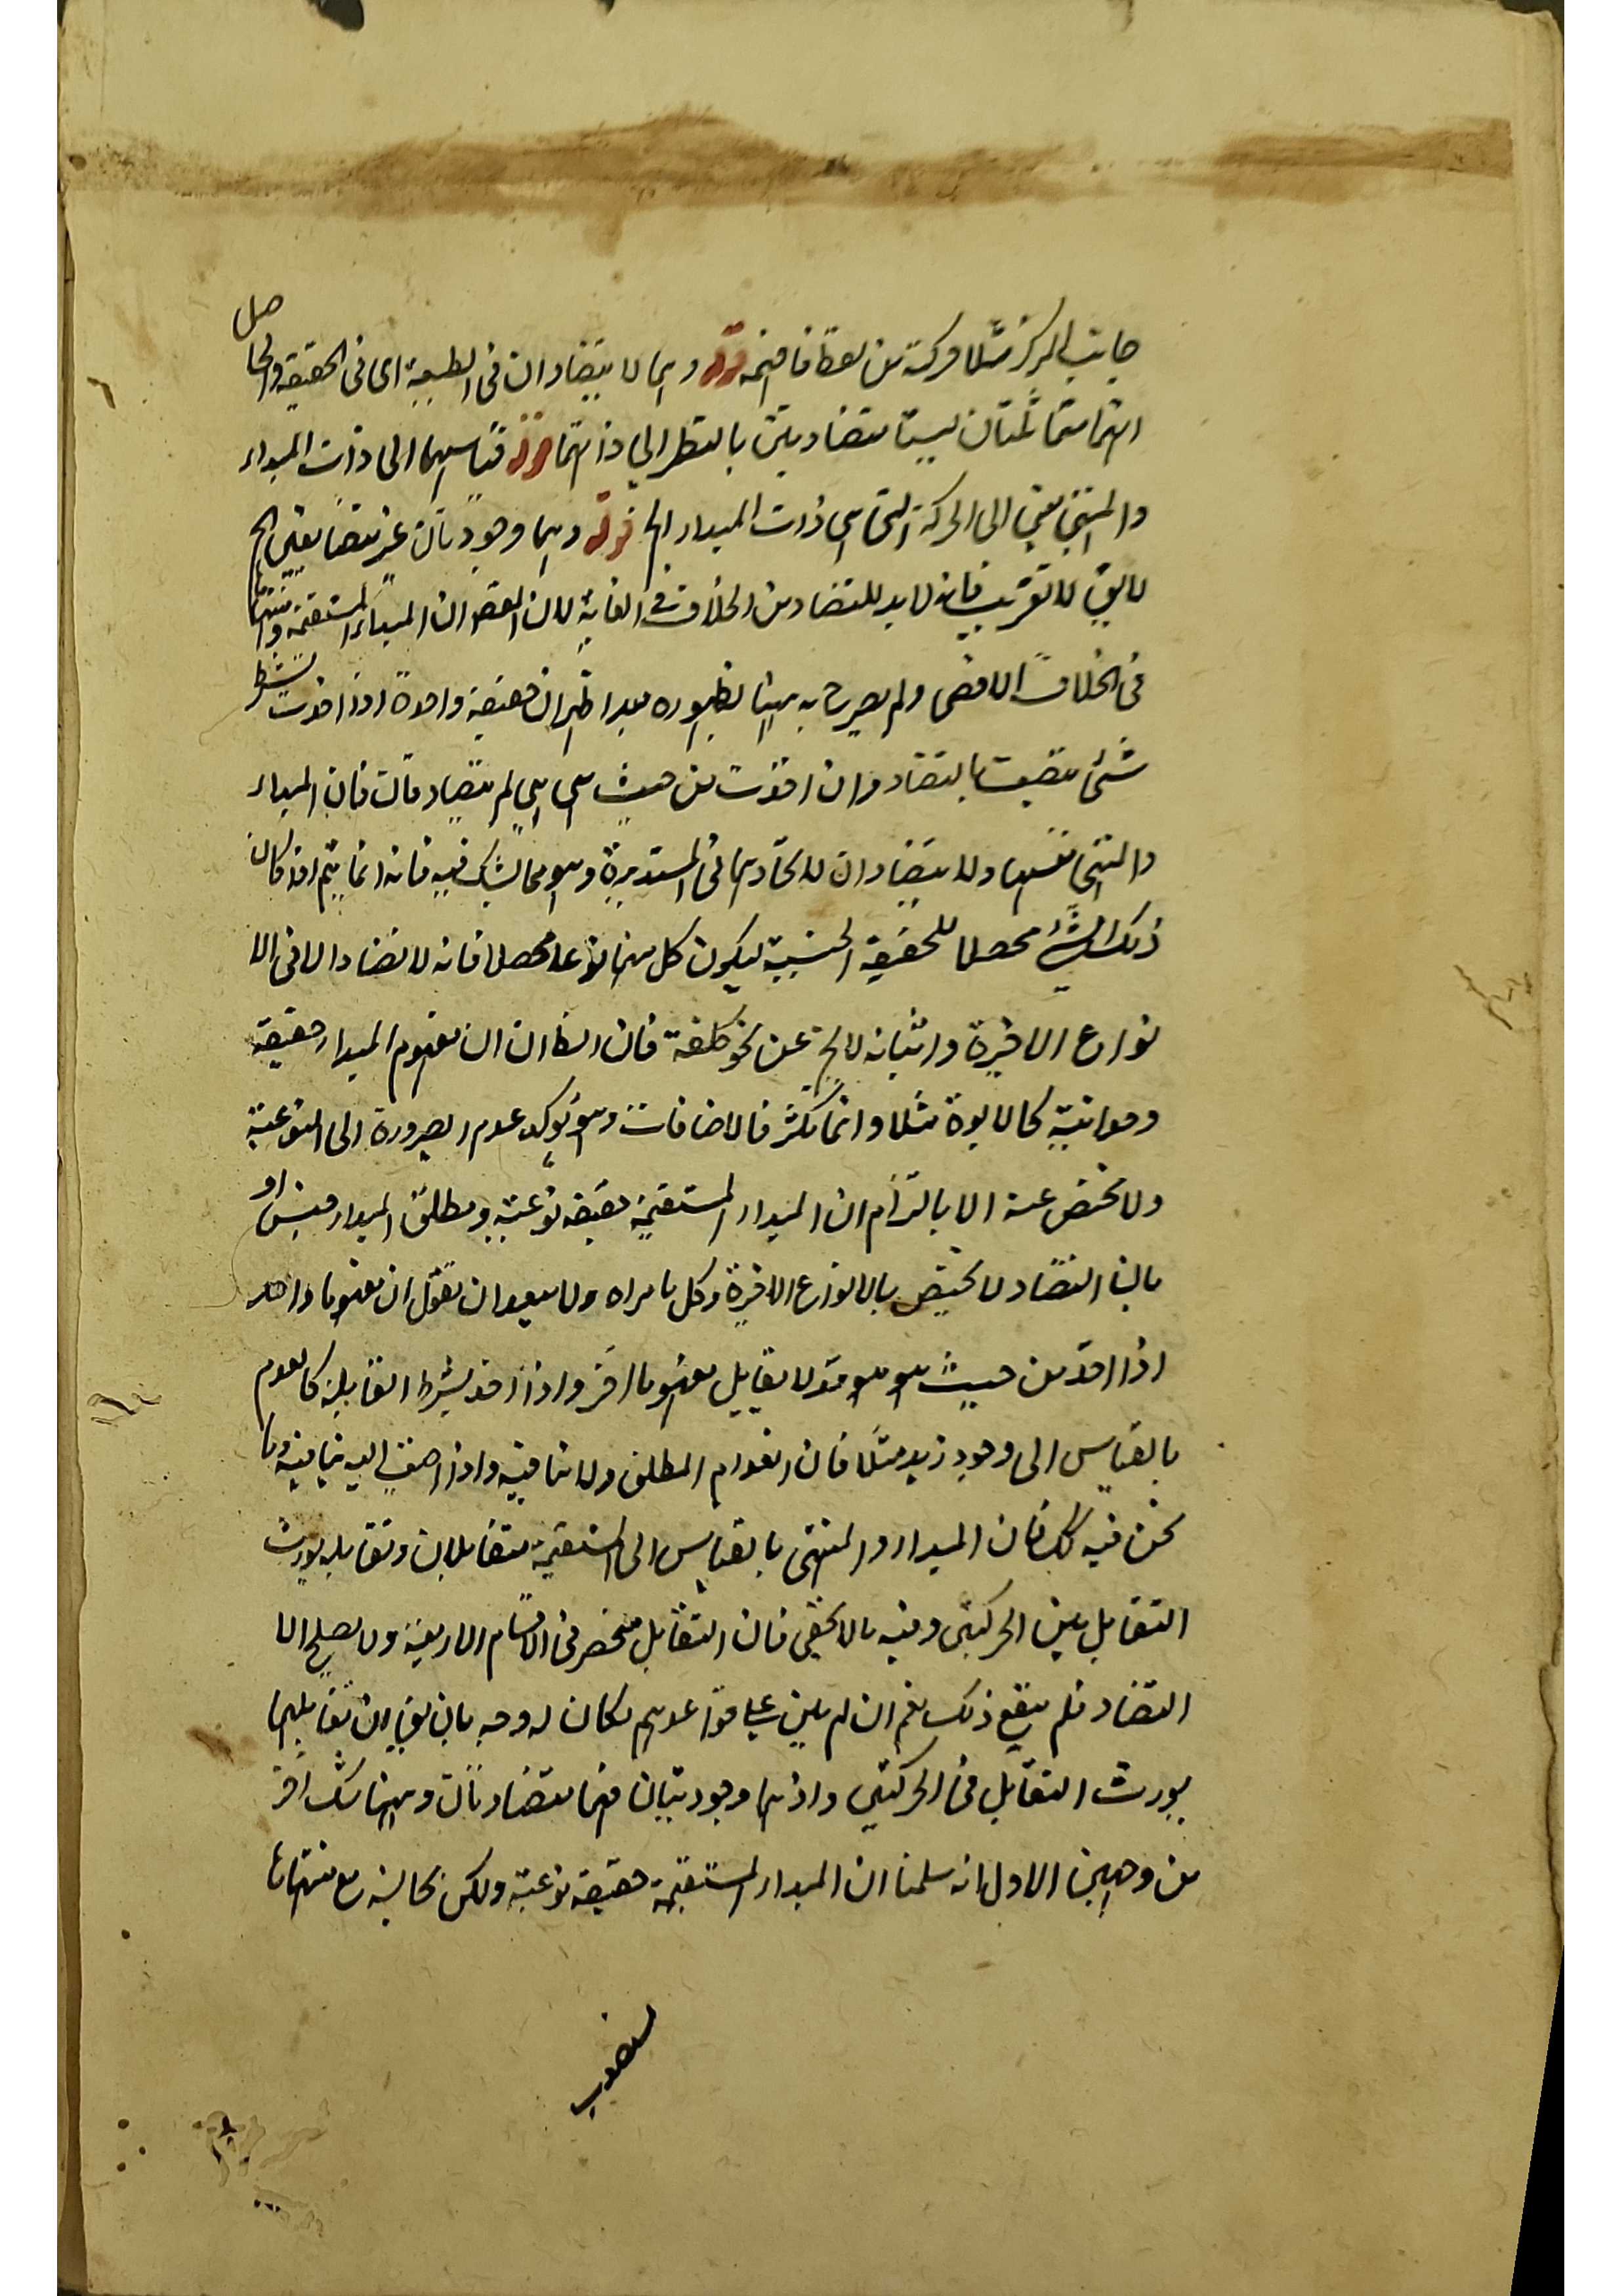 جانب المركز مثلا حركة من نقطة فافهمه قوله وهما لا يتضادان فى الطبيعة اى فى الحقيقة والحاصل
انهما متماثلتان ليستا متضادتين بالنظر الى ذاتهما قوله قياسهما الى ذات المبداء
والمنتهى يعنى الى الحركة التى هى ذات المبداء الخ قوله وهما وجوديتان غير متضايفين الخ
لا يتم التقريب فانه لا بد للتضاد من الخلاف فى الغاية لان المقصود ان المبداء المستقيمة ومنتهاها
فى الخلاف الاقصى ولم يصرح به ههنا لظهوره بعد اظهر ان حقيقة واحدة اذا اخذت بشرط
شئ تتصف بالتضاد وان اخذت من حيث هى هى لم تتضاد قال فان المبداء
والمنتهى نفسهما ولا يتضادان لاتحادهما فى المستديرة وهو مما يشك فيه فانه انما يتم اذا كان
ذلك الشئ محصلا للحقيقة الجنسية ليكون كل منهما نوعا محصلا فانه لا تضاد الا فى الا
نواع الاخيرة واثباته لا يخ عن نحو كلفة فان الظ ان مفهوم المبداء حقيقة
وحدانية كالابوة مثلا وانما تكثر فالاضافات وهو يوكد عدم الصيرورة الى النوعية
ولا مخلص عنه الا بالتزام ان المبداء المستقيمة حقيقة نوعية ومطلق المبداء جنس او
بان التضاد لا يختص بالانواع الاخيرة وكل ما تراه ولا يبعد ان نقول ان مفهوما واحد
اذا اخذ من حيث هو هو قد لا يقابل مفهوما اخر واذا اخذ بشرط القابلية كالعدم
بالقياس الى وجود زيد مثلا فان العدم المطلق ولا ينافيه واذا اضيف اليه ينافيه وما
نحن فيه كك فان المبداء والمنتهى بالقياس الى المستقيمة متقابلان وتقابله يورث
التقابل بين الحركتين وفيه ما لا يخفى فان التقابل منحصر فى الاقسام الاربعة ولا يصلح الا
التضاد فلم ينفع ذلك نعم ان لم يبين على قواعدهم لكان له وجه بان يقال ان تقابلهما
يورث التقابل فى الحركتين واذ هما وجوديتان فهما متضادتان وههنا شك اخر
من وجهين الاول انه سلمنا ان المبداء المستقيمة حقيقة نوعية ولكن مخالفته مع منتهاها